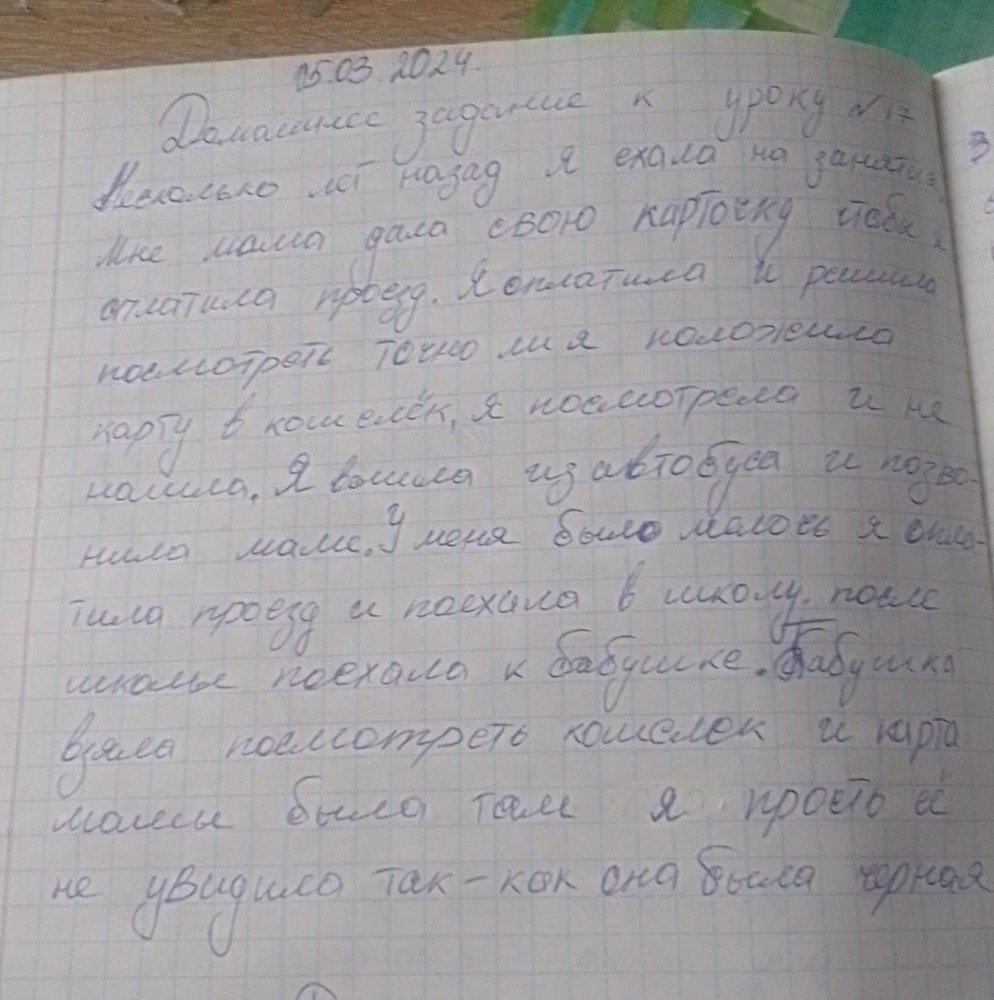 05.03.2024.
Домашнее задание к уроку №17
Несколько лет назад я ехала на занятия.
Мне мама дала свою карточку чтобы я
оплатила проезд. Я оплатила и решила
посмотреть точно ли я положила
карту в кошелёк, я посмотрела и не
нашла. Я вышла из автобуса и позво-
нила маме. У меня было мелочь я опла-
тила проезд и поехала в школу. после
школы поехала к бабушке. Бабушка
взяла посмотреть кошелек и карта
мамы была там я просто её
не увидила так-как она была черная